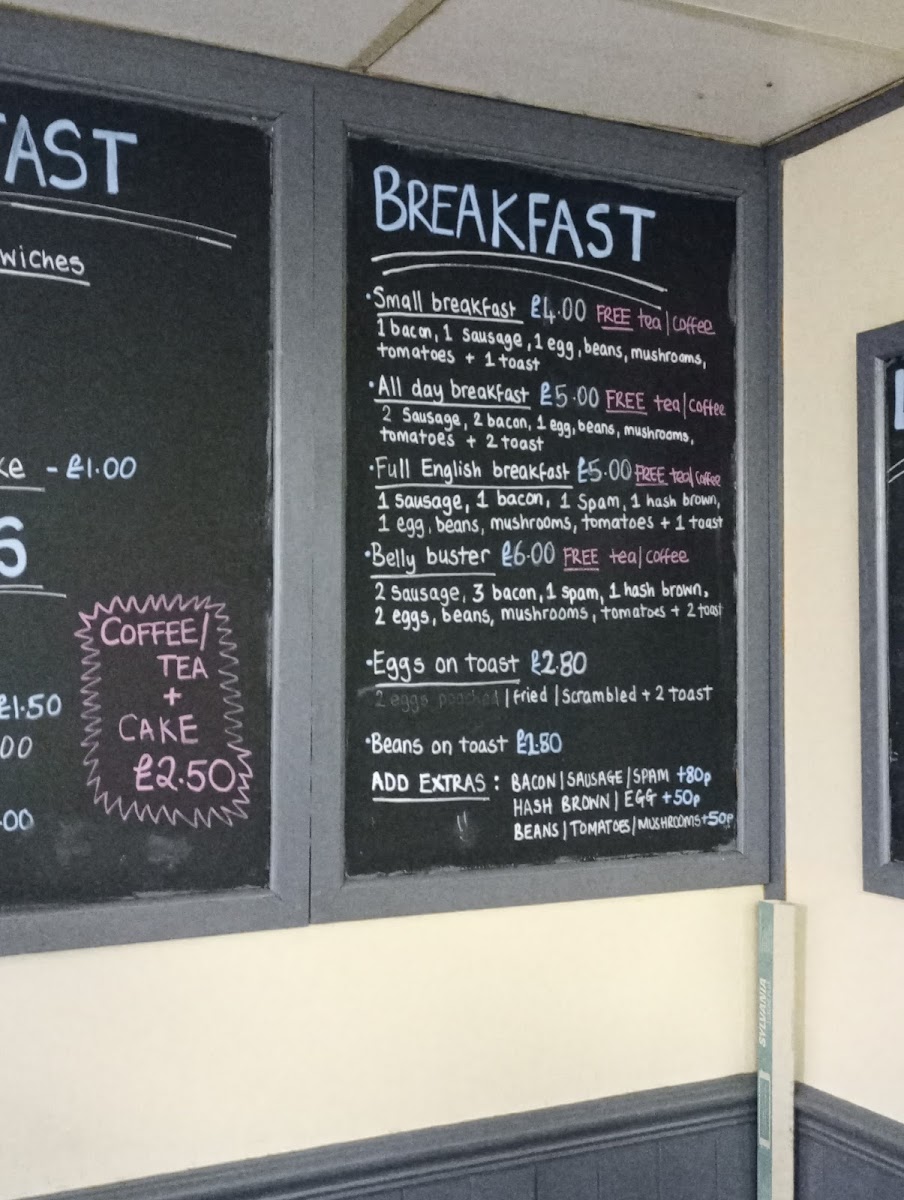 BREAKFAST
• Small breakfast £4.00 FREE tea | coffee
1 bacon, 1 sausage, 1 egg, beans, mushrooms,
tomatoes + 1 toast
• All day breakfast £5.00 FREE tea | coffee
2 Sausage, 2 bacon, 1 egg, beans, mushrooms,
tomatoes + 2 toast
• Full English breakfast £5.00 FREE tea | coffee
1 sausage, 1 bacon, 1 Spam, 1 hash brown,
1 egg, beans, mushrooms, tomatoes + 1 toast
• Belly buster £6.00 FREE tea | coffee
2 sausage, 3 bacon, 1 spam, 1 hash brown,
2 eggs, beans, mushrooms, tomatoes + 2 toast
• Eggs on toast £2.80
2 eggs poached | fried | Scrambled + 2 toast
• Beans on toast £1.80
ADD EXTRAS : BACON | SAUSAGE | SPAM +80p
HASH BROWN | EGG +50p
BEANS | TOMATOES | MUSHROOMS +50p
AST
wiches
ke - £1.00
S
£1.50
00
.00
COFFEE/
TEA
+
CAKE
£2.50
SYLVANIA